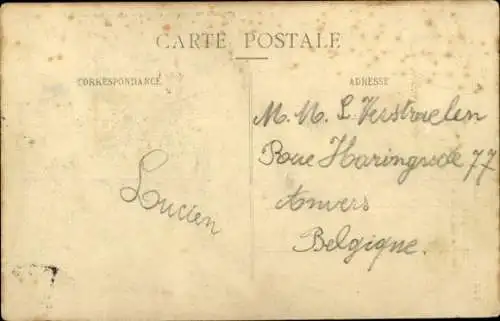 CARTE POSTALE
CORRESPONDANCE
ADRESSE
M. M. L. Verstraelen
Rue Haringrode 77
Anvers
Belgique.
Lucien